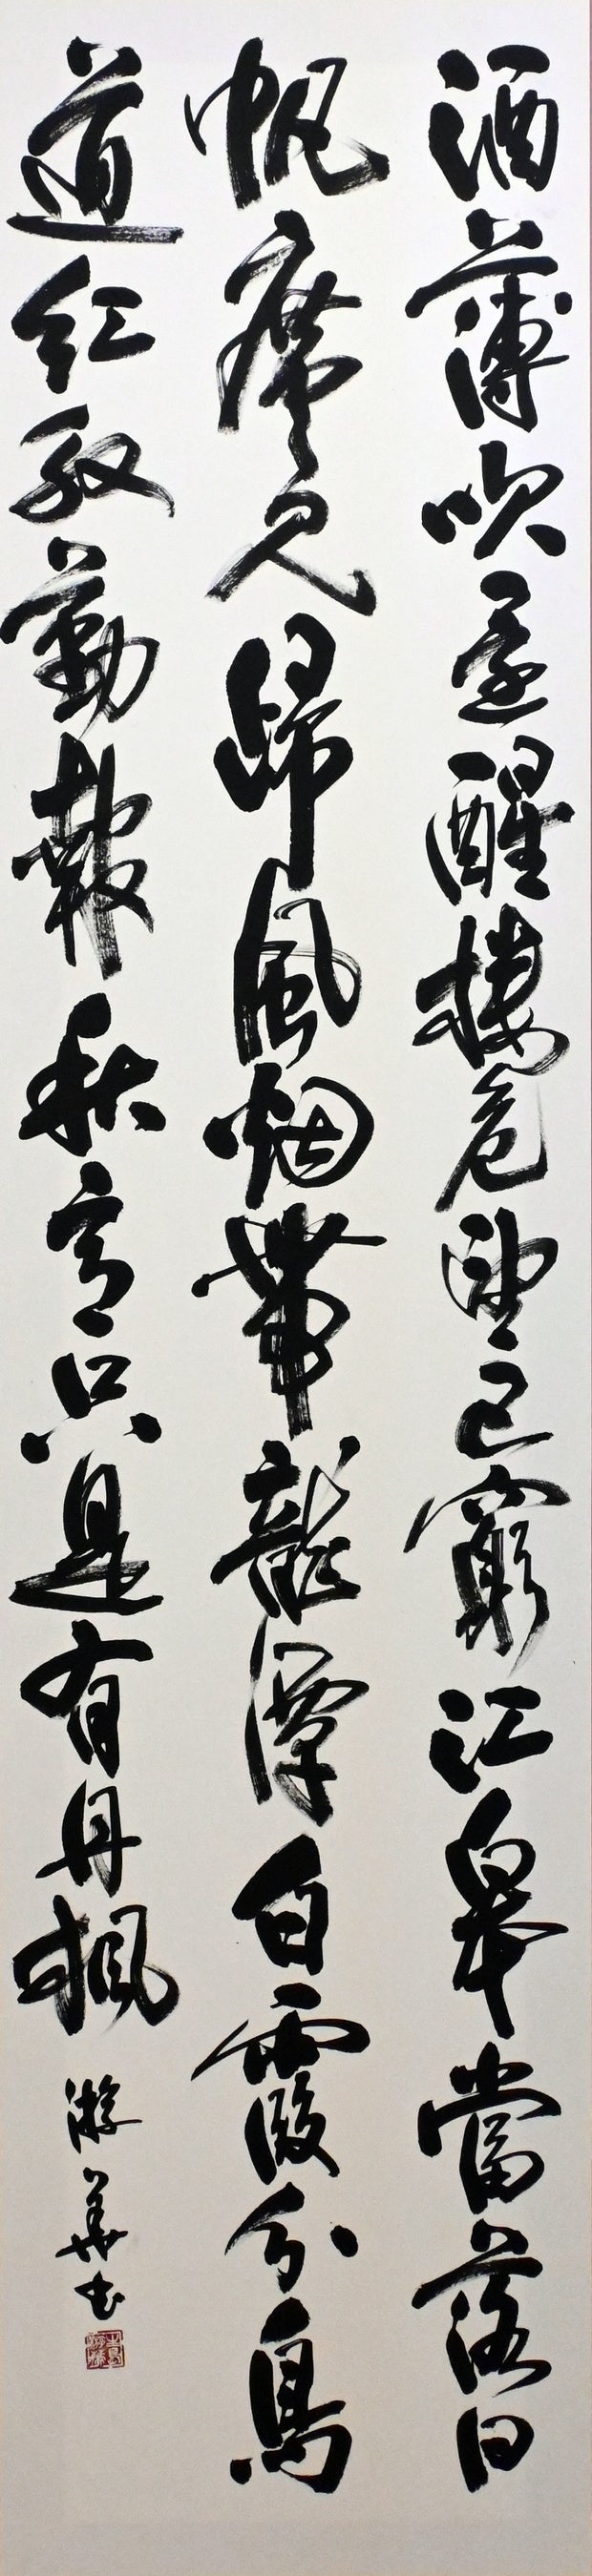 酒薄吹還醒樓危望已窮江皋當落日
帆席見歸風烟帶龍潭白霞分鳥
道紅殷勤報秋意只是有丹楓
游華書